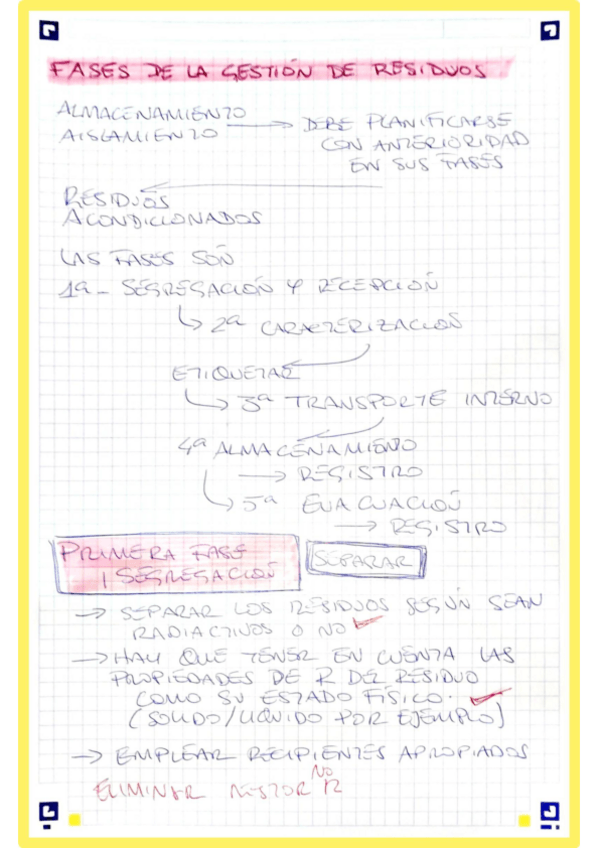 FASES DE LA GESTIÓN DE RESIDUOS
ALMACENAMIENTO
AISLAMIENTO → DEBE PLANIFICARSE
CON ANTERIORIDAD
EN SUS FASES
RESIDUOS
ACONDICIONADOS
LAS FASES SON
1ª - SEGREGACIÓN Y RECEPCIÓN
↳ 2ª CARACTERIZACIÓN
ETIQUETAR
↳ 3ª TRANSPORTE INTERNO
4ª ALMACENAMIENTO
→ REGISTRO
↳ 5ª EVACUACIÓN
→ REGISTRO
PRIMERA FASE
SEGREGACIÓN
SEPARAR
→ SEPARAR LOS RESIDUOS SEGÚN SEAN
RADIACTIVOS O NO
→ HAY QUE TENER EN CUENTA LAS
PROPIEDADES DE R DEL RESIDUO
COMO SU ESTADO FÍSICO.
(SOLIDO/LÍQUIDO POR EJEMPLO)
→ EMPLEAR RECIPIENTES APROPIADOS
NO
ELIMINAR R